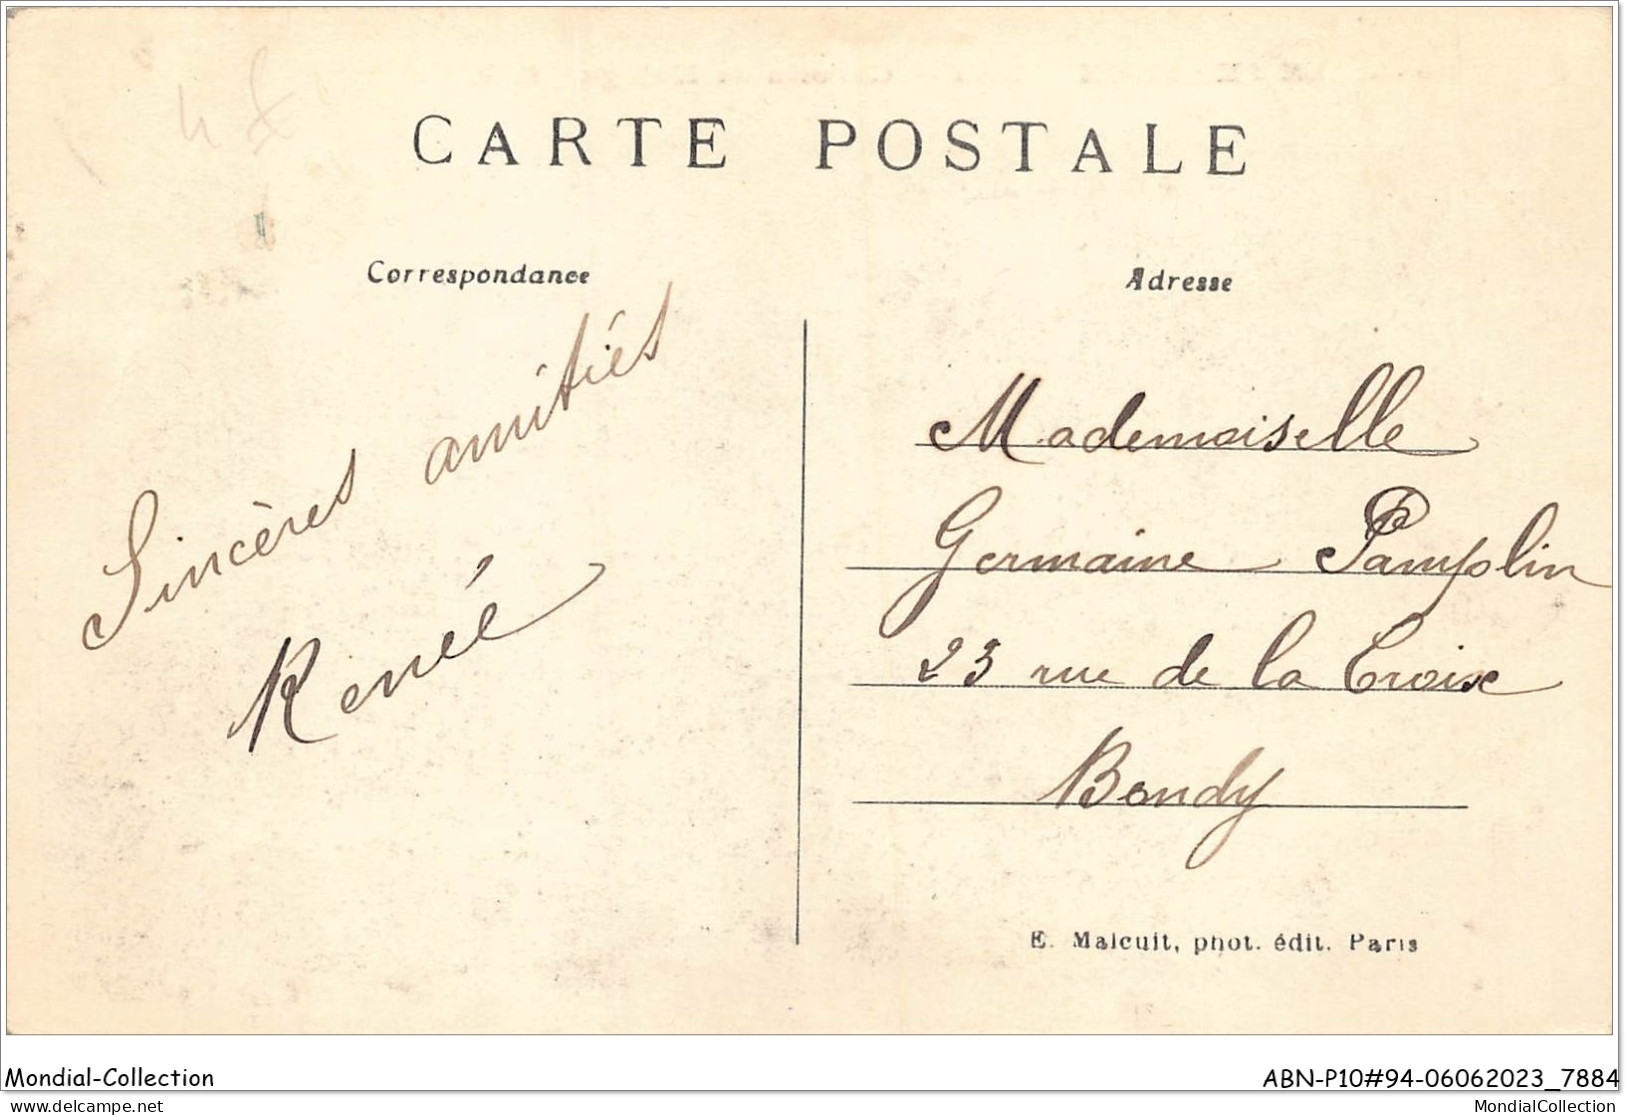 CARTE POSTALE
Correspondance
Sincères amitiés
Renée
Adresse
Mademoiselle
Germaine Pamplin
23 rue de la Croix
Bondy
E. Malcuit, phot. édit. Paris
Mondial-Collection
ABN-P10#94-06062023_7884
delcampe.net
MondialCollection